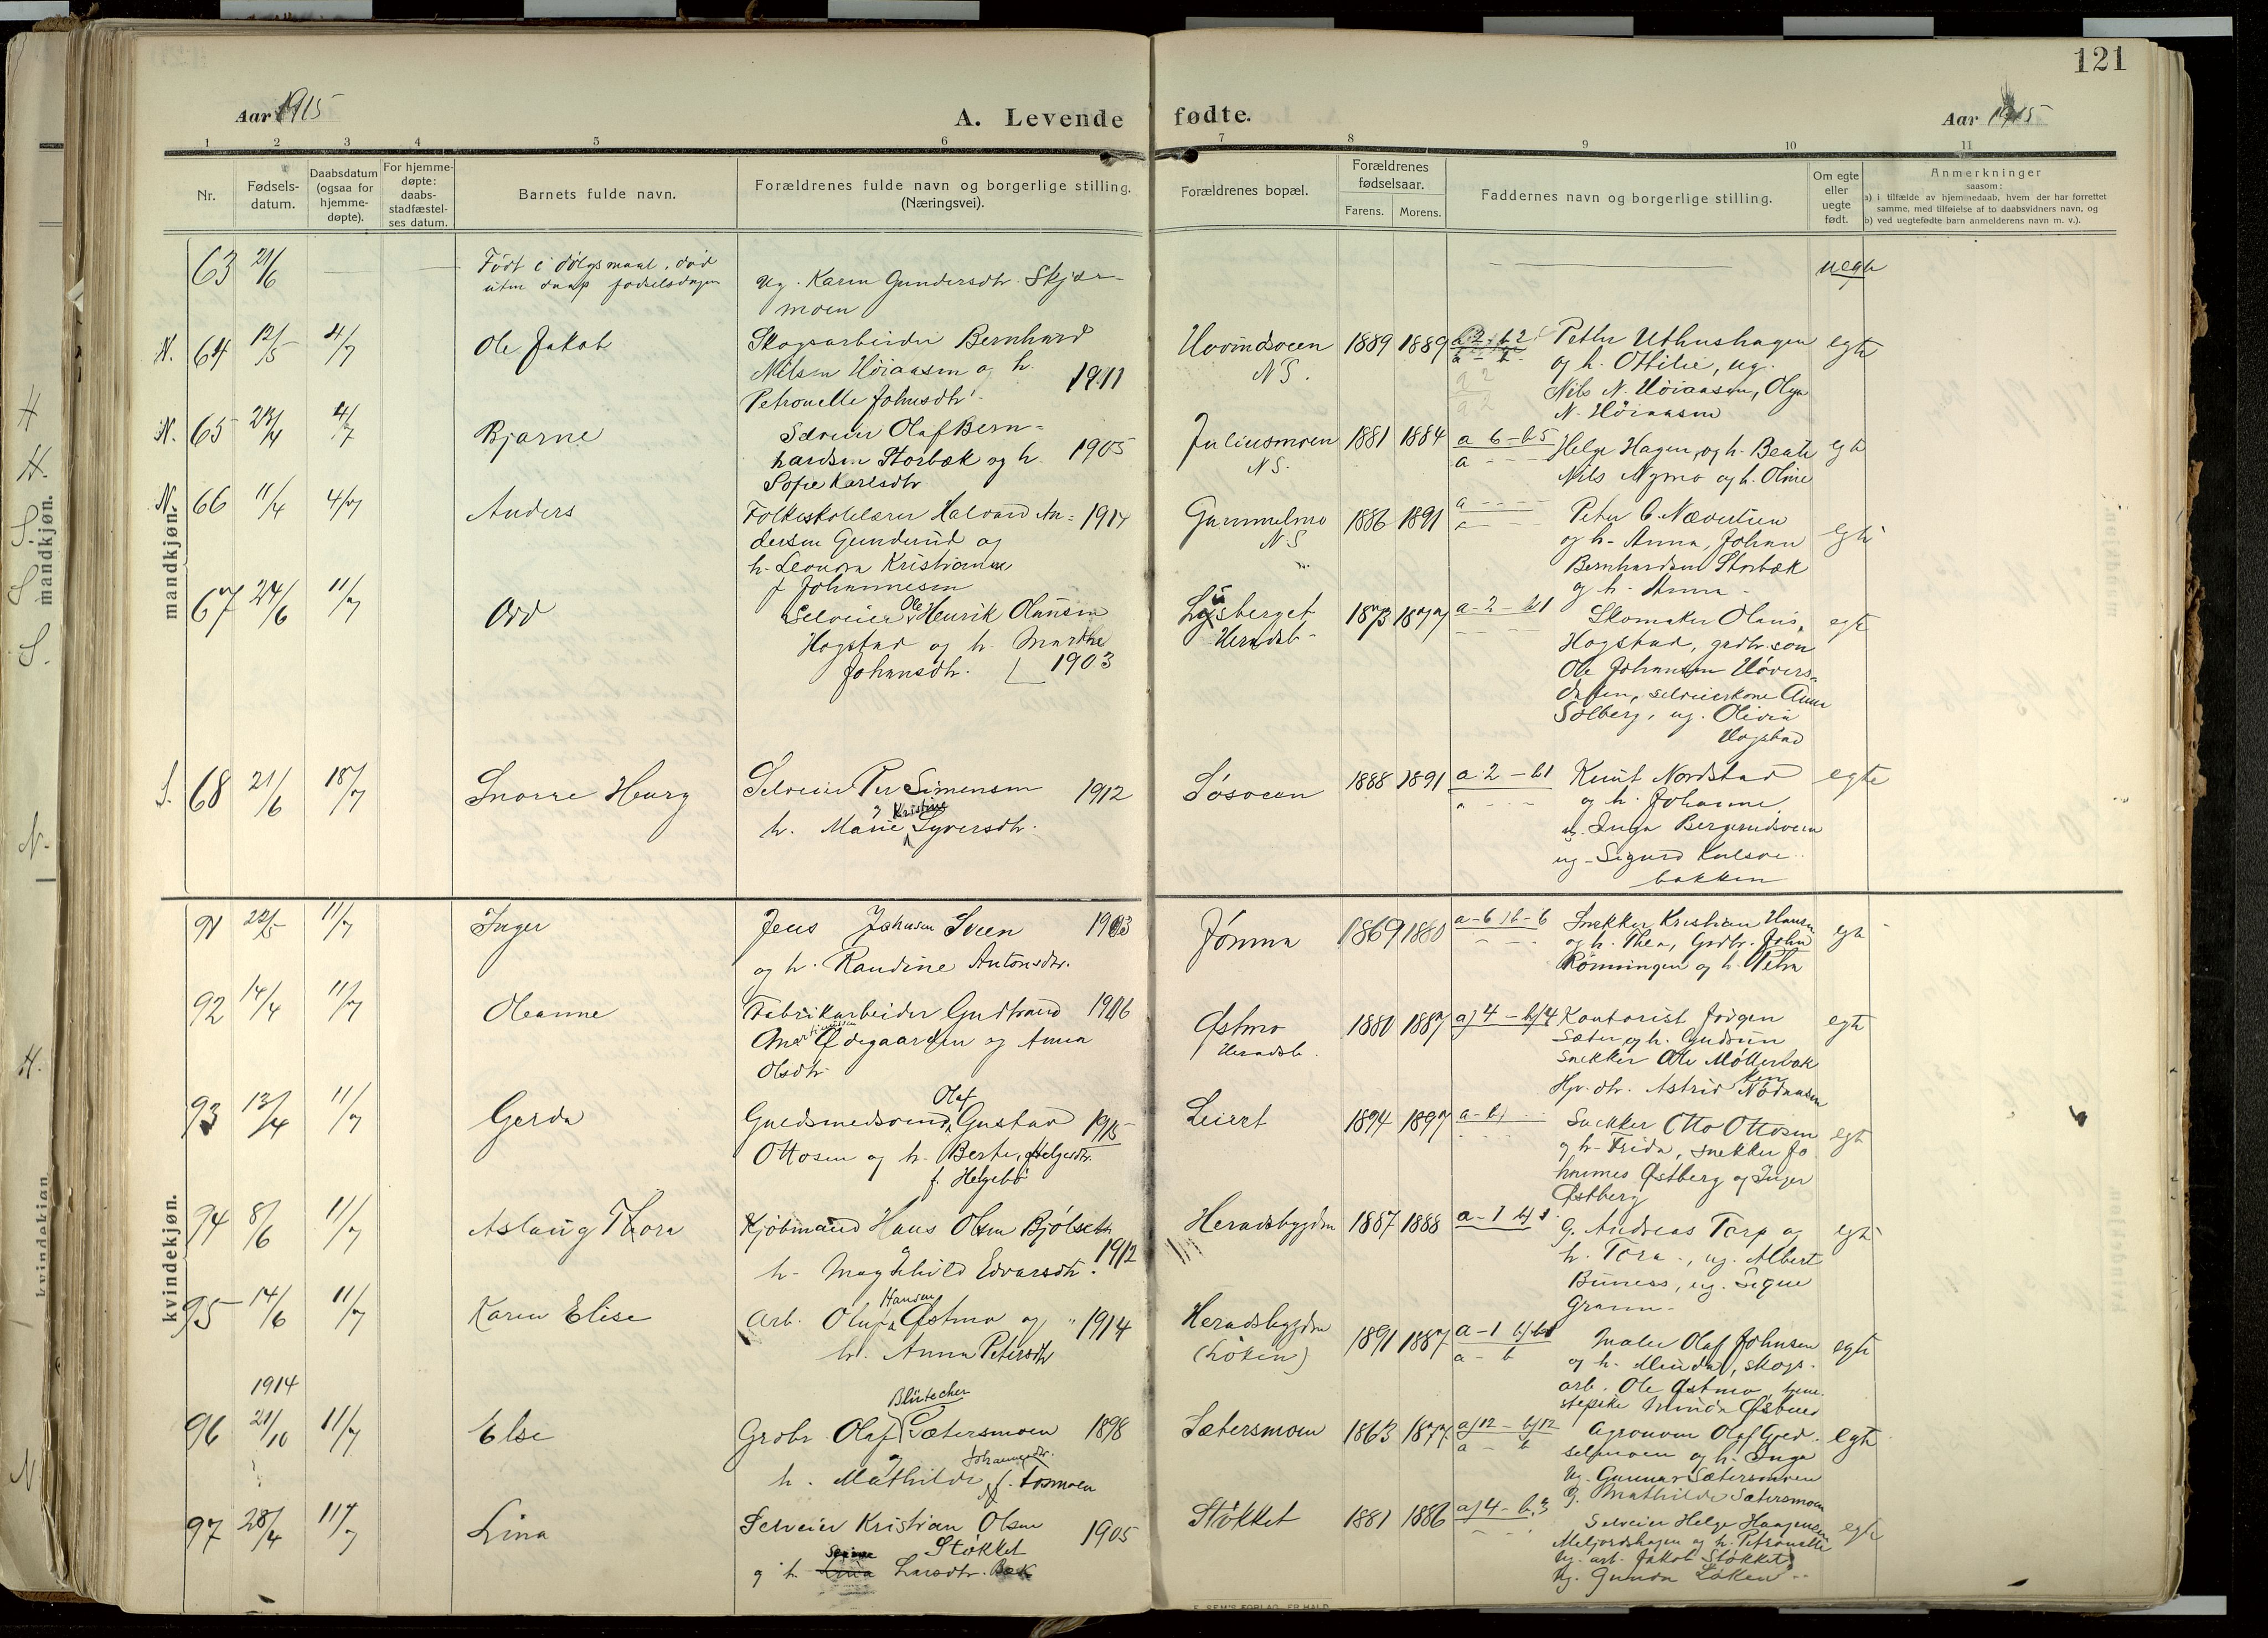 121
Aar 1915
A. Levende fødte.
Aar 1915
1 2 3 4 5 6 7 8 9 10 11
Nr.
Fødsels-
datum.
Daabsdatum
(ogsaa for
hjemme-
døpte).
For hjemme-
døpte:
daabs-
stadfæstel-
ses datum.
Barnets fulde navn.
Forældrenes fulde navn og borgerlige stilling.
(Næringsvei).
Forældrenes bopæl.
Forældrenes
fødselsaar.
Farens. Morens.
Faddernes navn og borgerlige stilling.
Om egte
eller
uegte
født.
Anmerkninger
saasom:
a) i tilfælde av hjemmedaab, hvem der har forrettet
samme, med tilføielse af to daabsvidners navn, og
b) ved uegtefødte barn anmelderens navn m. v.).
mandkjøn.
63 21/6
Født i dølgsmaal, død
uten daap fødselsdagen
Ug. Karen Gundersdtr. Skjær-
moen
uegte
N. 64 12/5 4/7
Ole Jakob
Skogsarbeider Bernhard
Nilsen Høiaasen og h.
Petronelle Johnsdtr. 1911
Hovindsveen
N S.
1889 1889
Petter Uthushagen
og h. Ottilie, ug.
Nils N. Høiaasen, Olga
N. Høiaasen
egte
N. 65 23/4 4/7
Bjarne
Selveier Olaf Bern-
hardsen Storbæk og h. 1905
Sofie Karlsdtr.
Juliusmoen
N S.
1881 1884
a 6 - b 5
a
Helge Hagen, og h. Beate
Nils Nymo og h. Oline
egte
N. 66 11/4 4/7
Anders
Folkeskolelærer Halvard An- 1914
dersen Gunderud og
h. Leonora Kristiane
f Johannesen
Gammelmo
N S
1886 1891
a
a
Peter C. Nævertien
og h. Anna, Johan
Bernhardsen Storbæk
og h. Anna
egte
67 24/6 11/7
Odd
Selveier Ole Henrik Olausen
Hogstad og h. Marthe
Johansdtr. 1903
Lusberget
Heradsb.
1873 1877
a - 2 - b 1
Skomaker Olaus
Hogstad, grdbr. søn
Ole Johansen Hovers-
dalen, selveierkone Anna
Solberg, ug. Olivia
Hogstad
egte
S. 68 21/6 18/7
Snorre Henry
Selveier Per Simensen 1912
og
h. Marie Kristine Syversdtr.
Søsveen
1888 1891
a. 2 - b 1
a
Knut Nordstad
og h. Johanne,
ug. Inga Bergerudsveen
ug. Sigurd Kulsve-
bakken
egte
kvindekjøn.
91 22/5 11/7
Inger
Jens Johnsen Sveen 1903
og h. Randine Antonsdtr.
Jømna
1869 1880
a - 6 b - 6
Snekker Kristian Hansen
og h. Thea, Grdbr. John
Rønningen og h. Petra
egte
92 14/4 11/7
Oleanne
Fabrikarbeider Gudbrand 1906
Ødegaarden og Anna
Olsdtr.
Østmo
Heradsb.
1880 1887
a) 4 - b) 4
Kontorist Jørgen
Sæter og h. Gudrun
Snekker Ole Møllerbak
ken
Hpr. dtr. Astrid Nordaasen
egte
93 13/4 11/7
Gerda
Guldsmedsvend Olaf Gustav 1915
Ottosen og h. Berte, Helgesdtr.
f. Helgebø
Leiret
1894 1897
a - b)
Snekker Otto Ottosen
og h. Frida, snekker Jo
hannes Østberg og Inger
Østberg
egte
94 8/6 11/7
Aslaug Thora
Kjøbmand Hans Olsen Bjølseth
og
h. Maghild Edvarsdtr. 1912
Heradsbygden
1887 1888
a - 1 b) 1
G. Andreas Torp og
h. Tora, ug. Albert
Buness, ug. Signe
Gramn
egte
95 14/6 11/7
Karen Elise
Arb. Oluf Hansen Østmo og 1914
h. Anna Petersdtr
Heradsbygden
(Løken)
1891 1887
a - 1 b) 1
a - b
Maler Olaf Johnsen
og h. Minda, skogs-
arb. Ole Østmo, tjene-
stepike Minda
egte
1914
96 21/10 11/7
Else
Grdbr. Olaf Blütecher Sætersmoen 1898
og
h. Mathilde Johannesdtr. f. Tosmoen
Sætersmoen
1863 1877
a) 12 - b) 12
a - b
Agronom Olaf Gjed-
selpmoen og h. Inga
Ug. Gunnar Sætersmoen
G. Mathilde Sætersmoen
egte
97 28/4 11/7
Lina
Selveier Kristian Olsen
Støkket 1905
og h. Larsdtr. Bæk
Støkket
1881 1886
a) 4 - b. 3
Selveier Helge Haagensen
Meljordshagen og h. Petronelle
Ug. arb. Jakob Støkket
Ug. Gunda Løken
egte